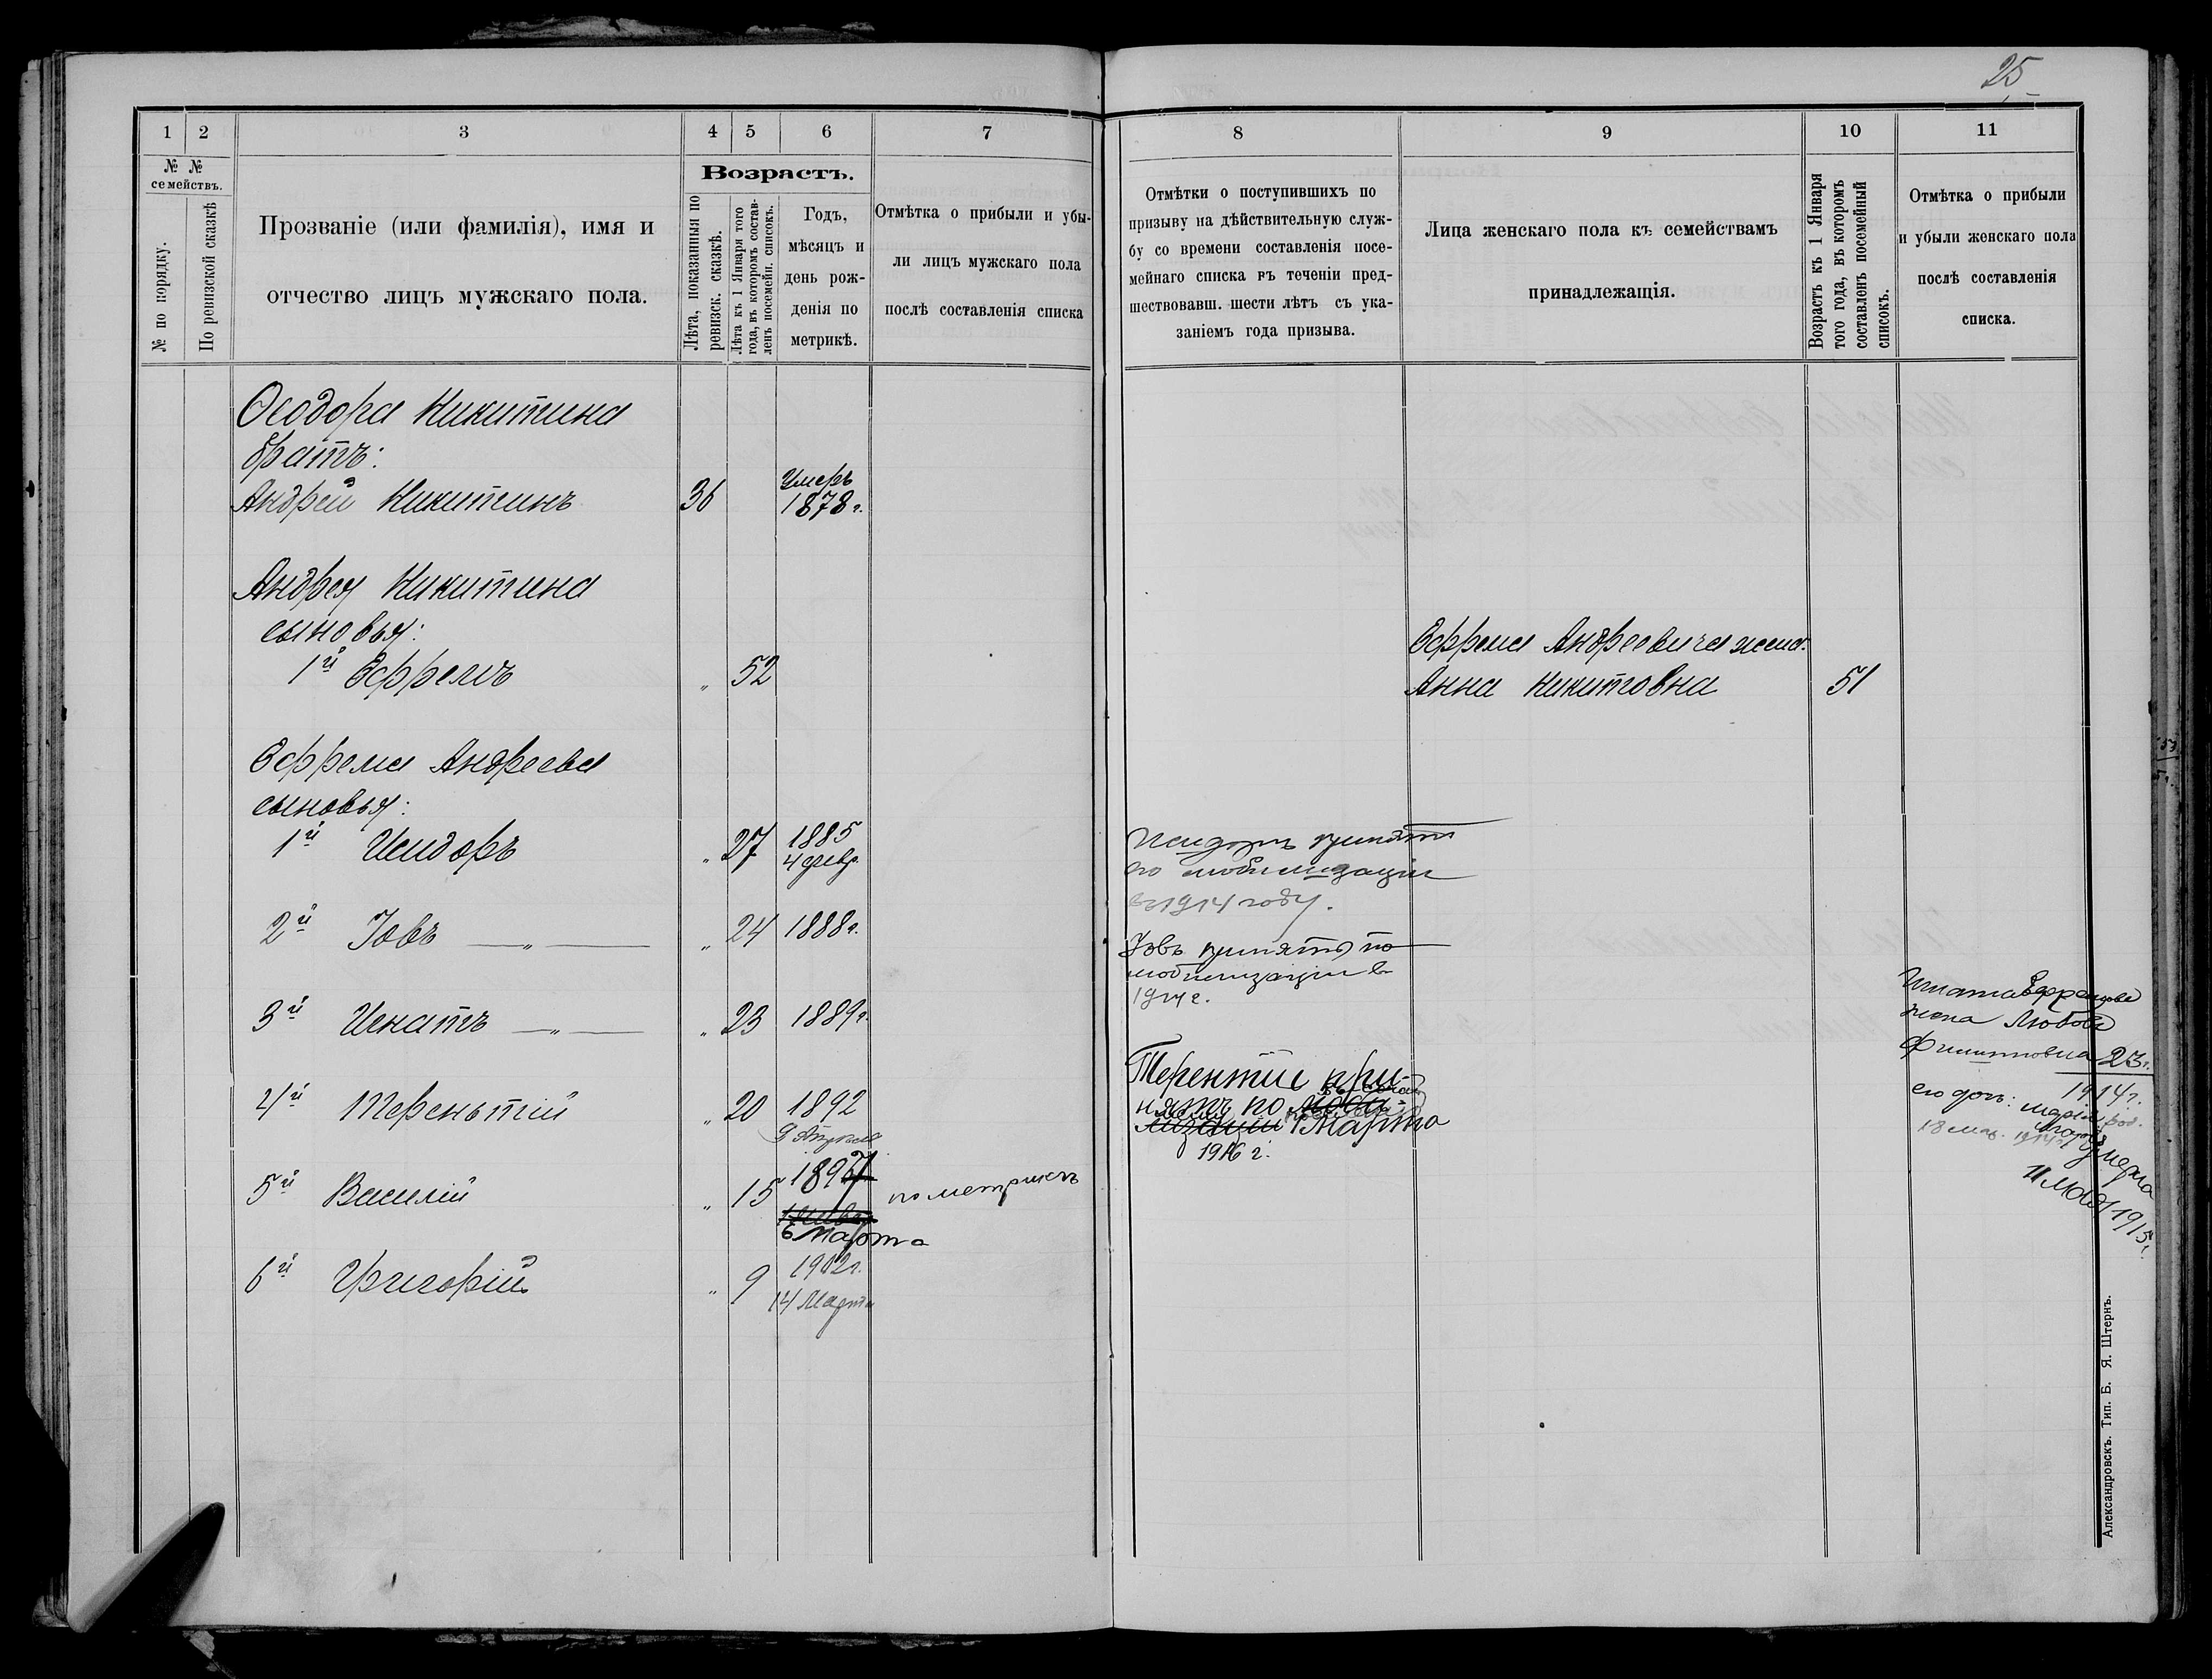 25
1
2
3
4
5
6
7
№ №
семействъ.
№ по порядку.
По ревизской сказкѣ
Прозваніе (или фамилія), имя и
отчество лицъ мужскаго пола.
Возрастъ.
Лѣта, показанныя по
ревизск. сказкѣ.
Лѣта къ 1 Января того
года, въ которомъ состав-
ленъ посемейн. списокъ.
Годъ,
мѣсяцъ и
день рож-
денія по
метрикѣ.
Отмѣтка о прибыли и убы-
ли лицъ мужскаго пола
послѣ составленія списка
Ѳеодора Никитина
братъ:
Андрей Никитинъ 36 Умеръ
1878 г.
Андрея Никитина
сыновья:
1й Ефремъ " 52
Ефрема Андреева
сыновья:
1й Исидоръ " 27 1885
4 февр.
2й Іовъ — " — " 24 1888 г.
3й Игнатъ — " — " 23 1889 г.
4й Терентій " 20 1892
9 Апреля
5й Василій " 15 1897 по метрикъ
6 Марта
6й Григорій " 9 1902 г.
14 Марта
8
9
10
11
Отмѣтки о поступившихъ по
призыву на дѣйствительную служ-
бу со времени составленія посе-
мейнаго списка въ теченіи пред-
шествовавш. шести лѣтъ съ ука-
заніемъ года призыва.
Лица женскаго пола къ семействамъ
принадлежащія.
Возрастъ къ 1 Января
того года, въ которомъ
составленъ посемейный
списокъ.
Отмѣтка о прибыли
и убыли женскаго пола
послѣ составленія
списка.
Ефрема Андреевича жена:
Анна Никитовна 51
Исидоръ принятъ
по мобилизаціи
въ 1914 году.
Іовъ принятъ по
мобилизаціи в
1914 г.
Терентіе при-
нятъ по моби-
лизаціи 1 Марта
1916 г.
Игната Ефремова
жена Любовь
Филиповна 23 г.
1914 г.
его доч: Марія род.
18 мар. 1914 г.
умерла
11 мая 1915 г.
Александровскъ. Тип. Б. Я. Штернъ.